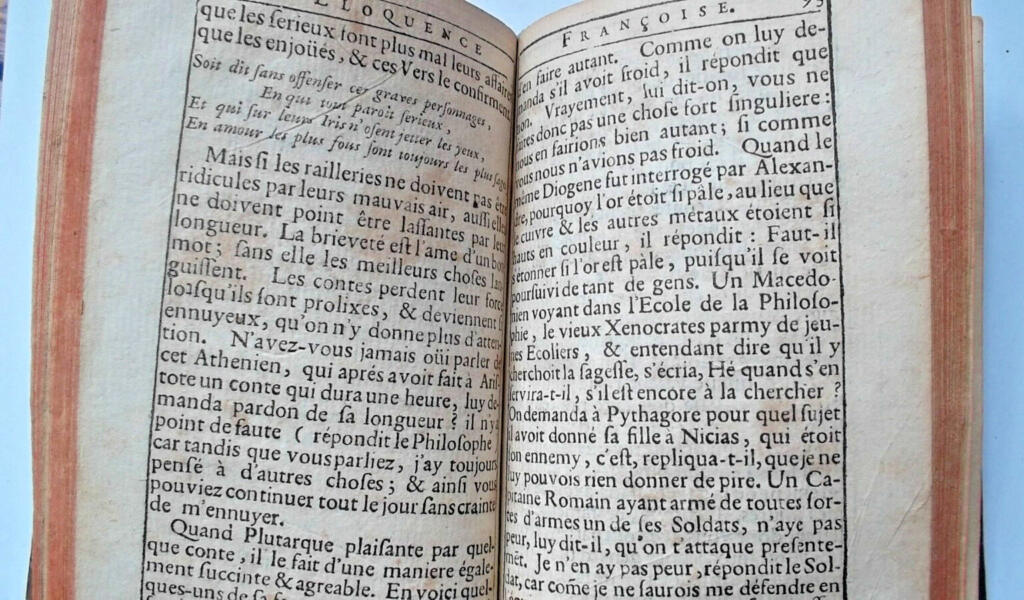 ELOQUENCE
que les ſerieux ſont plus mal leurs affaires
que les enjoüés, & ces Vers le confirment.
Soit dit ſans offenſer ces graves perſonnages,
En qui tout paroît ſerieux,
Et qui ſur leurs Iris n'oſent jetter les yeux,
En amour les plus fous ſont toujours les plus ſages
Mais ſi les railleries ne doivent pas être
ridicules par leurs mauvais air, auſſi elles
ne doivent point être laſſantes par leur
longueur. La brieveté eſt l'ame d'un bon
mot; ſans elle les meilleurs choſes lan-
guiſſent. Les contes perdent leur force
lorsqu'ils ſont prolixes, & deviennent ſi
ennuyeux, qu'on n'y donne plus d'atten-
tion. N'avez-vous jamais oüi parler de
cet Athenien, qui aprés avoit fait à Ariſ-
tote un conte qui dura une heure, luy de-
manda pardon de ſa longueur? il n'y a
point de faute ( répondit le Philoſophe
car tandis que vous parliez, j'ay toujours
penſé à d'autres choſes; & ainſi vous
pouviez continuer tout le jour ſans crainte
de m'ennuyer.
Quand Plutarque plaiſante par quel-
que conte, il le fait d'une maniere égale-
ment ſuccinte & agreable. En voici quel-
ques-uns de ſa
FRANÇOISE. 93
d'en faire autant. Comme on luy de-
manda s'il avoit froid, il répondit que
non. Vrayement, lui dit-on, vous ne
faites donc pas une choſe fort ſinguliere:
nous en fairions bien autant; ſi comme
vous nous n'avions pas froid. Quand le
même Diogene fut interrogé par Alexan-
dre, pourquoy l'or étoit ſi pâle, au lieu que
le cuivre & les autres métaux étoient ſi
hauts en couleur, il répondit: Faut-il
s'étonner ſi l'or eſt pâle, puiſqu'il ſe voit
pourſuivi de tant de gens. Un Macedo-
nien voyant dans l'Ecole de la Philoſo-
phie, le vieux Xenocrates parmy de jeu-
nes Ecoliers, & entendant dire qu'il y
cherchoit la ſageſſe, s'écria, Hé quand s'en
ſervira-t-il, s'il eſt encore à la chercher?
On demanda à Pythagore pour quel ſujet
il avoit donné ſa fille à Nicias, qui étoit
ſon ennemy, c'eſt, repliqua-t-il, que je ne
luy pouvois rien donner de pire. Un Ca-
pitaine Romain ayant armé de toutes ſor-
tes d'armes un de ſes Soldats, n'aye pas
peur, luy dit-il, qu'on t'attaque preſente-
mēt. Je n'en ay pas peur, répondit le Sol-
dat, car cōme je ne ſaurois me défendre en